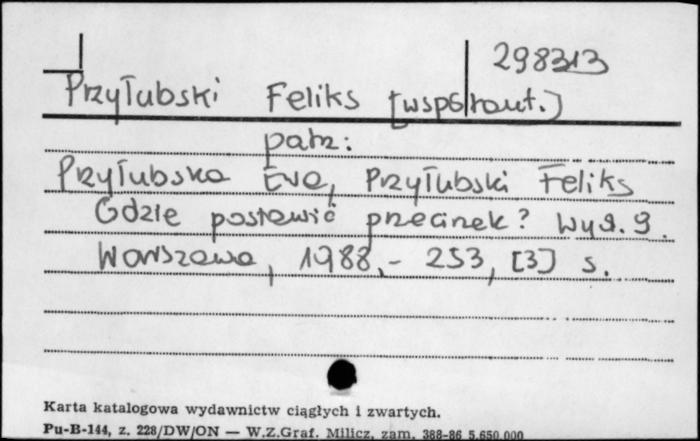 298313
Przyłubski Feliks [współaut.]
patrz:
Przyłubska Ewa, Przyłubski Feliks
Gdzie postawić przecinek? Wyd. 9.
Warszawa, 1988,- 253, [3] s.
Karta katalogowa wydawnictw ciągłych i zwartych.
Pu-B-144, z. 228/DW/ON — W.Z.Graf. Milicz, zam. 388-86 5.650.000